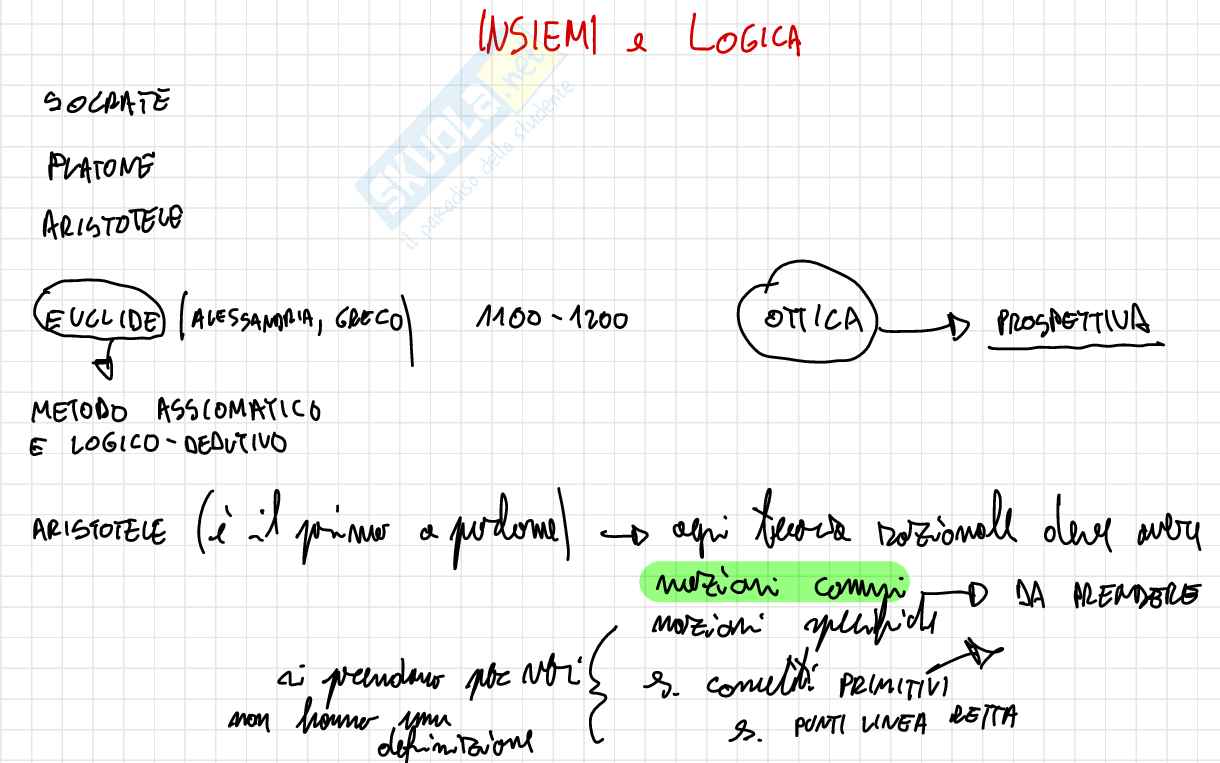 INSIEMI e LOGICA
SKUOLA.net
il paradiso dello studente
SOCRATE
PLATONE
ARISTOTELE
EUCLIDE (ALESSANDRIA, GRECO) 1100-1200 OTTICA PROSPETTIVA
METODO ASSIOMATICO
E LOGICO-DEDUTIVO
ARISTOTELE (è il primo a ) ogni teoria razionale deve avere
nozioni comuni DA PRENDERE
nozioni specifiche
si prendono per veri es. concetti PRIMITIVI
non hanno una es. PUNTI LINEA RETTA
definizione